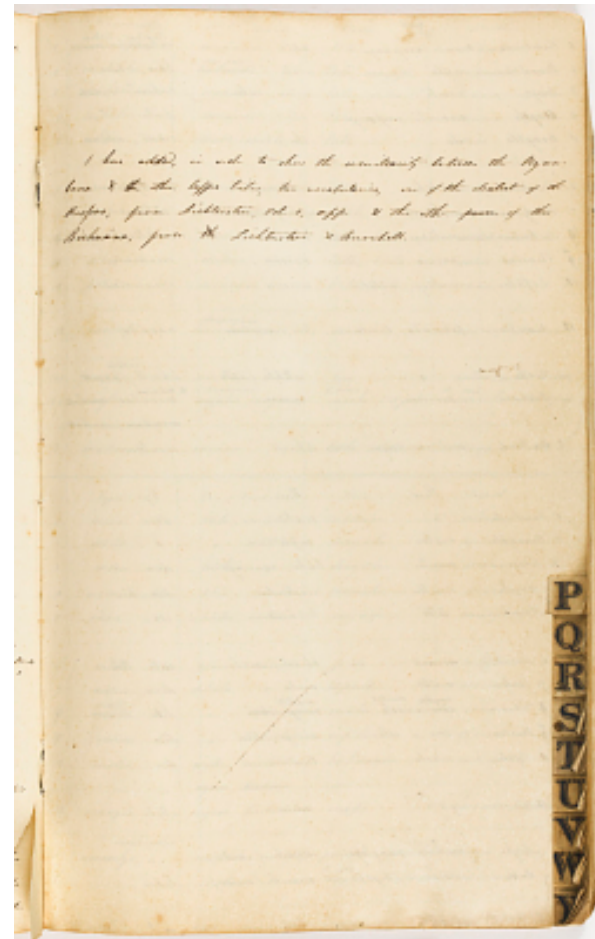 I have added, in order to show the similarity between the
& the other Caffre tribes, two vocabularies, one of the dialect of the
from Lichtenstein, vol. 1, app. & the other of the
from Lichtenstein & Burchell.
P
Q
R
S
T
U
V
W
Y